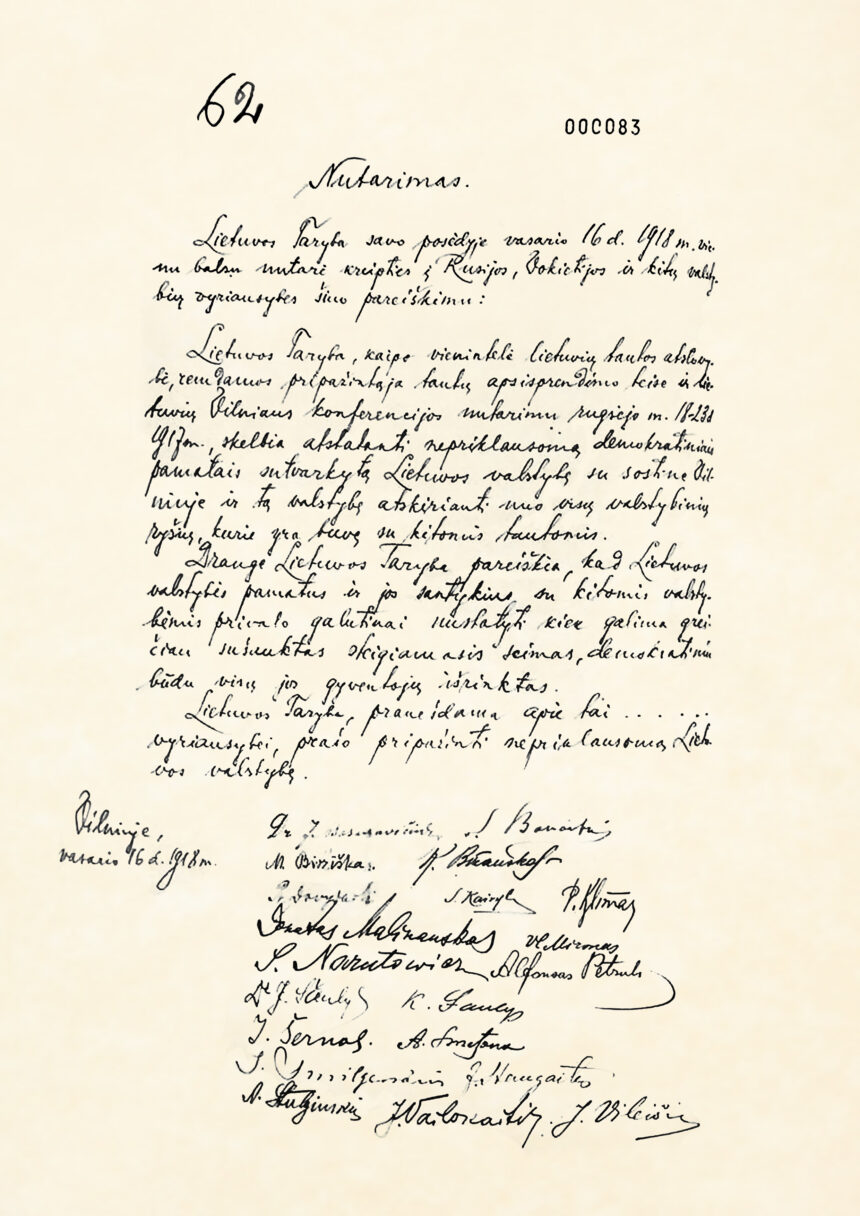 62
000083
Nutarimas.
Lietuvos Taryba savo posėdyje vasario 16 d. 1918 m. vie-
nu balsu nutarė kreipties į Rusijos, Vokietijos ir kitų valsty-
bių vyriausybes šiuo pareiškimu:
Lietuvos Taryba, kaipo vienintelė lietuvių tautos atstovy-
bė, remdamos pripažintąja tautų apsisprendimo teise ir lie-
tuvių Vilniaus konferencijos nutarimu rugsėjo m. 18-23 d
1917 m., skelbia atstatanti nepriklausomą demokratiniais
pamatais sutvarkytą Lietuvos valstybę su sostine Vil-
niuje ir tą valstybę atskirianti nuo visų valstybinių
ryšių, kurie yra buvę su kitomis tautomis.
Drauge Lietuvos Taryba pareiškia, kad Lietuvos
valstybės pamatus ir jos santykius su kitomis valsty-
bėmis privalo galutinai nustatyti kiek galima grei-
čiau sušauktas steigiamasis seimas, demokratiniu
būdu visų jos gyventojų išrinktas.
Lietuvos Taryba, pranešdama apie tai . . . . . .
vyriausybei, prašo pripažinti nepriklausomą Lietu-
vos valstybę.
Vilniuje,
vasario 16 d. 1918 m.
Dr J. Basanavičius S Banaitis
M. Biržiška. K. Bizauskas
P. Dovydaitis S. Kairys P. Klimas
Donatas Malinauskas Vl. Mironas
S. Narutowicz Alfonsas Petrulis
Dr J. Šaulys K. Šaulys
J. Šernas. A. Smetona
J. Smilgevičius J. Staugaitis
A. Stulginskis J. Vailokaitis. J. Vileišis